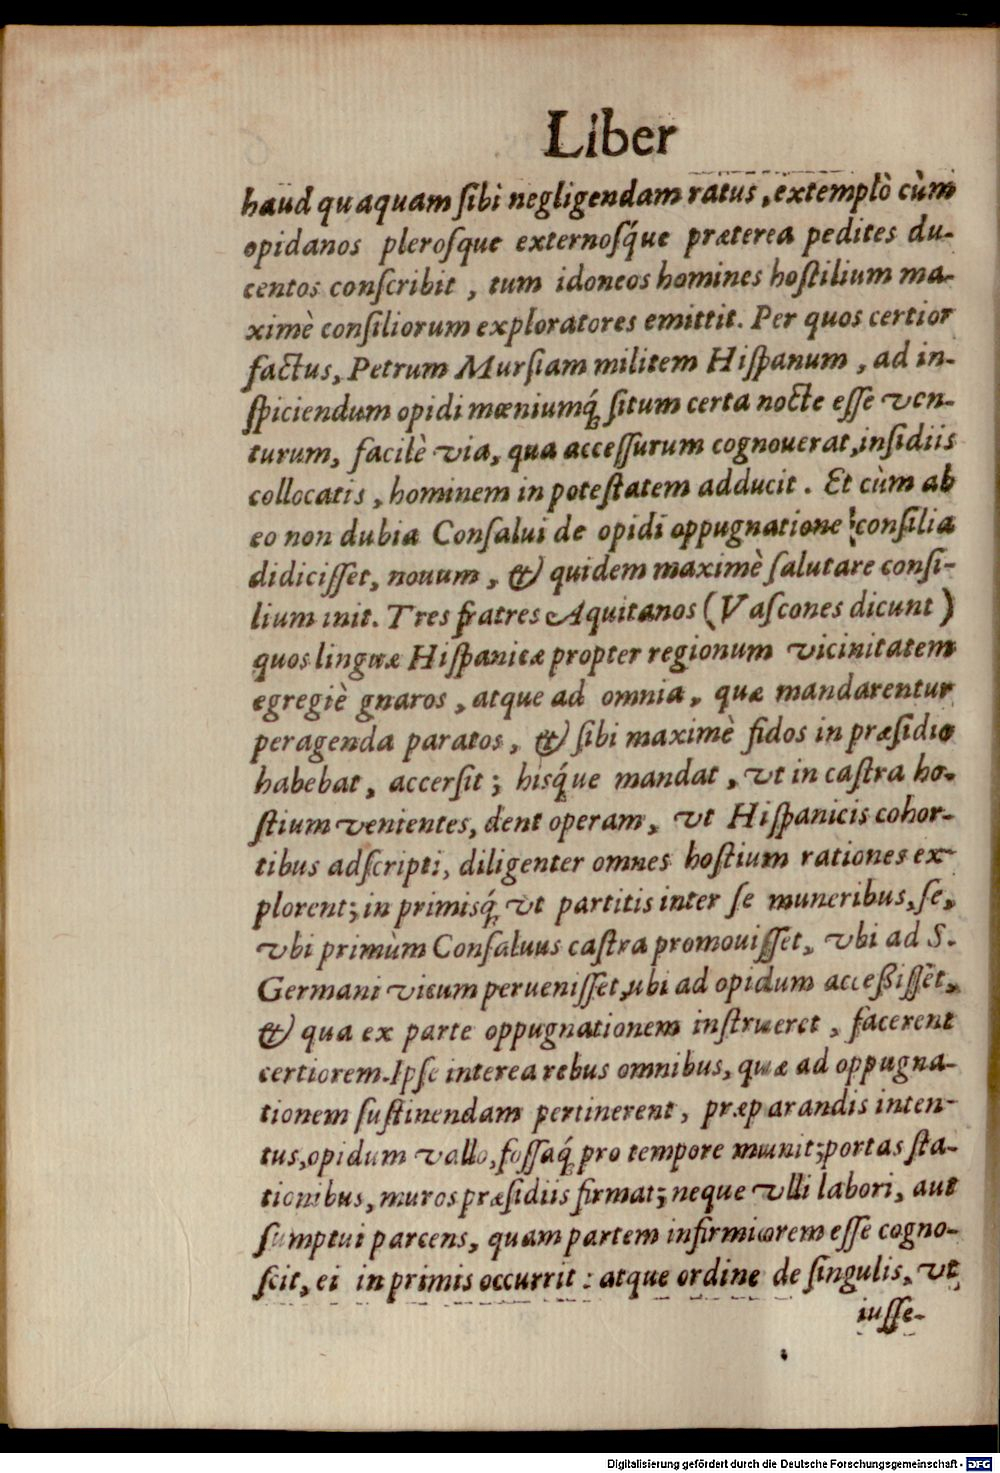 Liber
haud quaquam ſibi negligendam ratus, extemplò cùm
opidanos pleroſque externoſq́ue præterea pedites du-
centos conſcribit, tum idoneos homines hoſtilium ma-
ximè conſiliorum exploratores emittit. Per quos certior
factus, Petrum Murſiam militem Hiſpanum, ad in-
ſpiciendum opidi mœniumq́; ſitum certa nocte eſſe ven-
turum, facilè via, qua acceſſurum cognouerat, inſidiis
collocatis, hominem in poteſtatem adducit. Et cùm ab
eo non dubia Conſalui de opidi oppugnatione conſilia
didiciſſet, nouum, & quidem maximè ſalutare conſi-
lium init. Tres fratres Aquitanos (Vaſcones dicunt)
quos linguæ Hiſpanicæ propter regionum vicinitatem
egregiè gnaros, atque ad omnia, quæ mandarentur
peragenda paratos, & ſibi maximè fidos in præſidio
habebat, accerſit; hisq́ue mandat, vt in caſtra ho-
ſtium venientes, dent operam, vt Hiſpanicis cohor-
tibus adſcripti, diligenter omnes hoſtium rationes ex-
plorent; in primisq́; vt partitis inter ſe muneribus, ſe,
vbi primùm Conſaluus caſtra promouiſſet, vbi ad S.
Germani vicum perueniſſet, ubi ad opidum acceßiſſet,
& qua ex parte oppugnationem inſtrueret, facerent
certiorem. Ipſe interea rebus omnibus, quæ ad oppugna-
tionem ſuſtinendam pertinerent, præparandis inten-
tus, opidum vallo, foſſaq́; pro tempore munit; portas ſta-
tionibus, muros præſidiis firmat; neque vlli labori, aut
ſumptui parcens, quam partem infirmiorem eſſe cogno-
ſcit, ei in primis occurrit: atque ordine de ſingulis, vt
iuſſe-
Digitalisierung gefördert durch die Deutsche Forschungsgemeinschaft - DFG